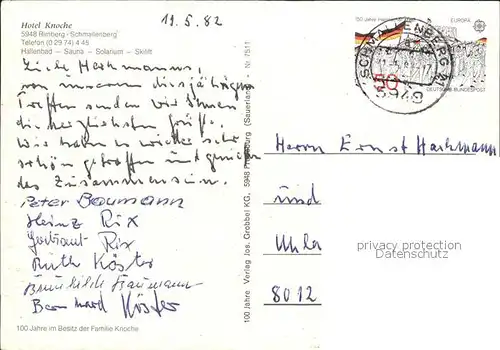 Hotel Knoche
5948 Rimberg · Schmallenberg
Telefon (0 29 74) 4 45
Hallenbad – Sauna – Solarium – Skilift
19.5.82
Liebe Harkmanns,
von unserem diesjährigen
Treffen senden wir Ihnen
die herzlichsten Grüße.
Wir haben es wieder sehr
schön getroffen und genießen
das Zusammensein.
Peter Baumann
Heinz Rix
Gertraut Rix
Ruth Köster
Brunhilde Baumann
Bernhard Köster
100 Jahre im Besitz der Familie Knoche
100 Jahre Verlag Jos. Grobbel KG, 5948 Fredeburg (Sauerland)
Nr. 7511
EUROPA
DEUTSCHE BUNDESPOST
50
SCHMALLENBERG 1
5948
Herrn Ernst Harkmann
und
8012
privacy protection
Datenschutz